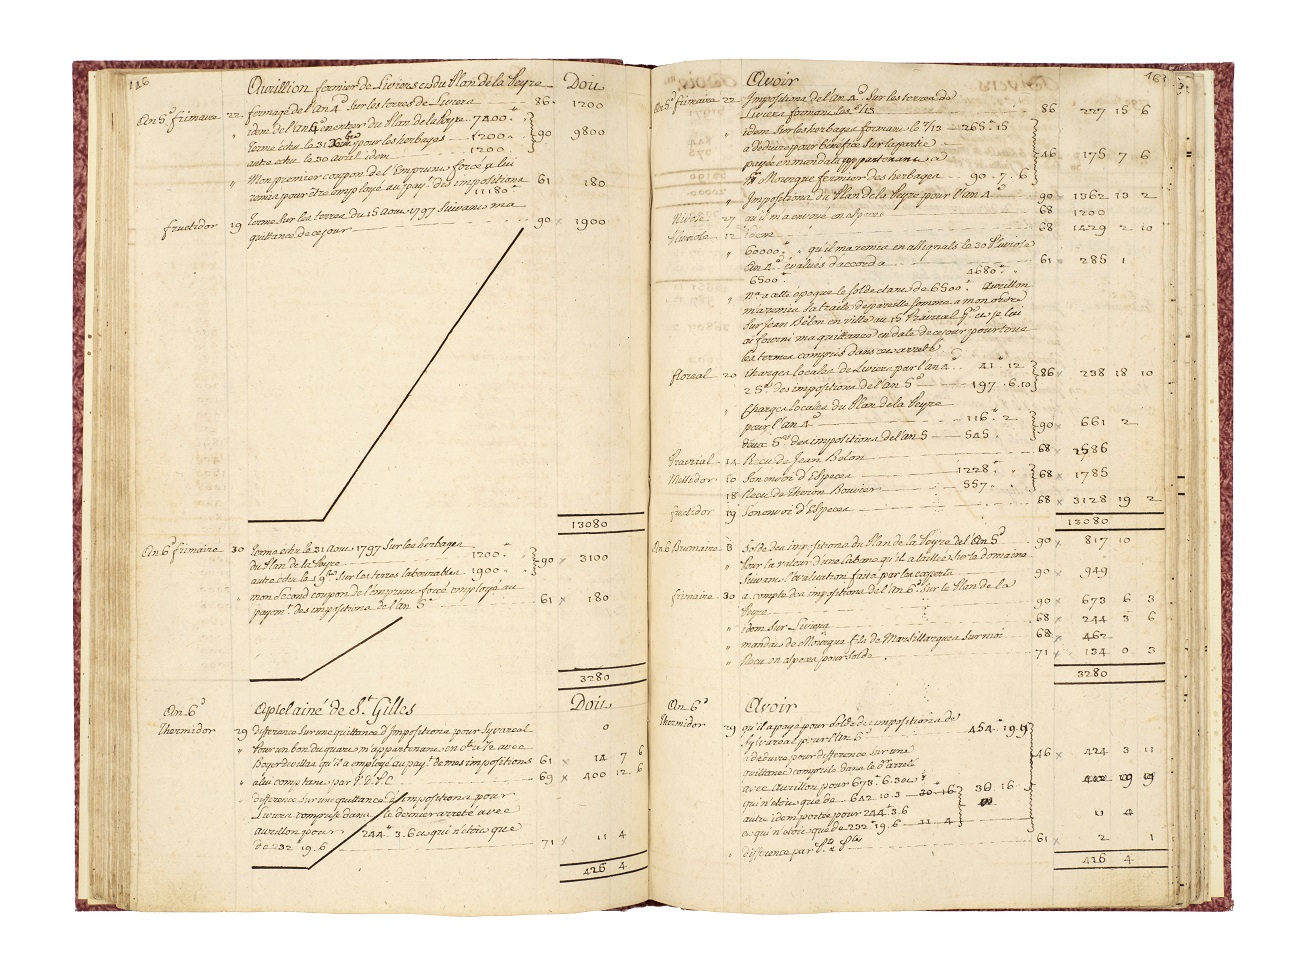 116
Avrillion fermier de Liviers et du Plan de la Peyre Doit
An 5e frimaire 22 fermage de l'an 4e sur les terres de Liviera 86 1200
" idem de l'an 4e en entier du Plan de la Peyre 7400
terme echu le 31 Xbre pour les herbages 1200 90 9800
autre echu le 30 avril idem 1200
" Mon premier coupon de l'Emprunt forcé a lui
remis pour être employé au payt des impositions 61 180
11180
fructidor 19 terme sur les terres du 15 Aout 1797 suivant ma
quittance de ce jour 90 1900
13080
An 6e frimaire 30 terme echu le 31 Aout 1797 sur les herbages
du Plan de la Peyre 1200 90 3100
autre echu le 1 9bre sur les terres labourables 1900
" mon second coupon de l'emprunt forcé employé au
payemt des impositions de l'an 5e 61 180
3280
An 6e Aptel ainé de St Gilles Doit
Thermidor 29 difference sur une quittance d'Impositions pour Sylvareal 0
" Pour un bon du quart m'appartenant en avec
Boyer qu'il a employé au payt de mes impositions 61 14 7 6
" a lui comptant par 69 400 12 6
" difference sur une quittance d'impositions pour
Liviera comprise dans le dernier arreté avec
avrillion pour 244 3.6 et qui n'etoit que
de 232 19.6 71 11 4
426 4
Avoir 161
An 5e frimaire 22 Impositions de l'an 4e sur les terres de
Liviera formant les 86 227 15 6
" idem sur les herbages formant le 265 15
a deduire pour benefice sur la partie
payée en mandats appartenant a 46 175 7 6
Mr Mourgue fermier des herbages 90.7.6
" Impositions du Plan de la Peyre pour l'an 4e 90 1362 13 2
Nivose 27 qu'il m'a envoyé en especes 68 1200
Pluviose 12 idem 68 1429 2 10
" 60000 qu'il m'a remis en assignats le 30 Pluviose
An 4e évalués d'accord a 61 285 1
6500 4680
" Na a cette époque le solde etant de 6500 Avrillon
m'a remis sa traite de pareille somme a mon ordre
sur Jean Bélon en ville au 15 Prairial et je lui
ai fourni ma quittance en date de ce jour pour tous
les termes compris dans cet arreté
floreal 20 Charges locales de Liviera par l'an 4e 41 12 86 238 18 10
2 5es des impositions de l'an 5e 197.6.10
" Charges locales du Plan de la Peyre
pour l'an 4e 116 2 90 661 2
deux 5es des impositions de l'an 5 545
Prairial 14 Recu de Jean Belon 68 2586
Messidor 10 son envoi d'Especes 1228 68 1785
18 Recu de Theron Bouvier 557
fructidor 19 son envoi d'Especes 68 3128 19 2
13080
An 6 Brumaire 8 Solde des impositions du Plan de la Peyre de l'an 5e 90 817 10
" Pour la valeur d'une cabane qu'il a laissée sur le domaine
suivant l'évaluation faite par les experts 90 949
frimaire 30 a compte des impositions de l'an 6e sur le Plan de la
Peyre 90 673 6 3
" idem sur Liviera 68 244 3 6
" mandat de Mourgue fils de Marsillargues sur moi 68 462
" Recu en especes pour solde 71 134 0 3
3280
An 6e Avoir
Thermidor 29 qu'il a payé pour solde des impositions de
Sylvareal pour l'an 6e 454 19 9
a deduire pour difference sur une 46 424 3 11
quittance comprise dans le dr arreté
avec Avrillon pour 673.6.3
qui n'etoit que de 642 10.3 30.16 30 16
autre idem portée pour 244.3.6 11 4
et qui n'etoit que de 232 19.6 11 4
" difference par 61 2 1
426 4